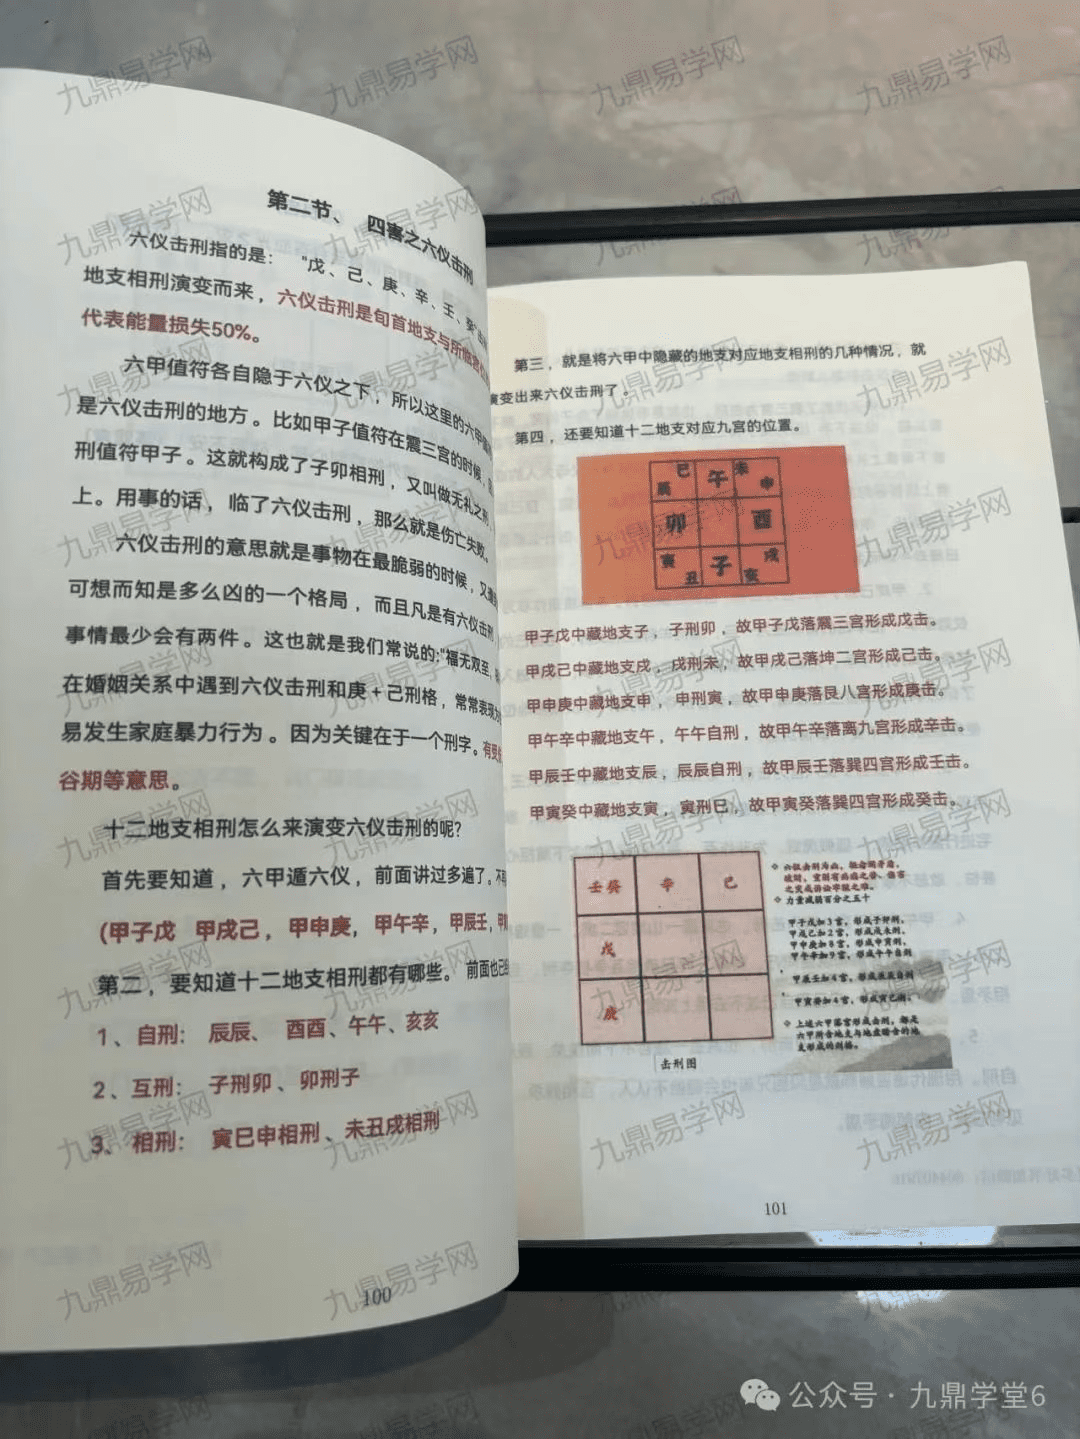 第二节、 四害之六仪击刑
六仪击刑指的是： "戊、己、庚、辛、壬、癸"
地支相刑演变而来，六仪击刑是旬首地支与所临宫
代表能量损失50%。
六甲值符各自隐于六仪之下，所以这里的六甲值
是六仪击刑的地方。比如甲子值符在震三宫的时候，
刑值符甲子。这就构成了子卯相刑，又叫做无礼之刑，
上。用事的话，临了六仪击刑，那么就是伤亡失败。
六仪击刑的意思就是事物在最脆弱的时候，又遭
可想而知是多么凶的一个格局，而且凡是有六仪击刑，
事情最少会有两件。这也就是我们常说的:"福无双至，
在婚姻关系中遇到六仪击刑和庚+己刑格，常常表现为
易发生家庭暴力行为。因为关键在于一个刑字。有
谷期等意思。
十二地支相刑怎么来演变六仪击刑的呢?
首先要知道，六甲遁六仪，前面讲过多遍了。不
(甲子戊 甲戌己，甲申庚，甲午辛，甲辰壬，甲
第二，要知道十二地支相刑都有哪些。前面也已
1、自刑： 辰辰、 酉酉、午午、亥亥
2、互刑： 子刑卯、卯刑子
3、相刑： 寅巳申相刑、未丑戌相刑
100
第三，就是将六甲中隐藏的地支对应地支相刑的几种情况，就
演变出来六仪击刑了。
第四，还要知道十二地支对应九宫的位置。
辰 巳 午 未 申
卯 酉
寅 丑 子 亥 戌
甲子戊中藏地支子，子刑卯，故甲子戊落震三宫形成戊击。
甲戌己中藏地支戌，戌刑未，故甲戌己落坤二宫形成己击。
甲申庚中藏地支申， 申刑寅，故甲申庚落艮八宫形成庚击。
甲午辛中藏地支午，午午自刑，故甲午辛落离九宫形成辛击。
甲辰壬中藏地支辰，辰辰自刑，故甲辰壬落巽四宫形成壬击。
甲寅癸中藏地支寅，寅刑巳，故甲寅癸落巽四宫形成癸击。
壬癸 辛 己
戊
庚
击刑图
六仪击刑为凶，
之灾或游讼牢狱之难。
力量减弱百分之五十
甲子戊加3宫，形成子卯刑，
甲戌己加2宫，形成戌未刑，
甲申庚加8宫，形成申寅刑，
甲午辛加9宫，形成午午自刑
甲辰壬加4宫，形成辰辰自刑
甲寅癸加4宫，形成寅巳刑。
上述六甲落宫形成击刑，都是
六甲所含地支与地盘暗含的地
支形成的刑格。
101
九鼎易学网
公众号·九鼎学堂6